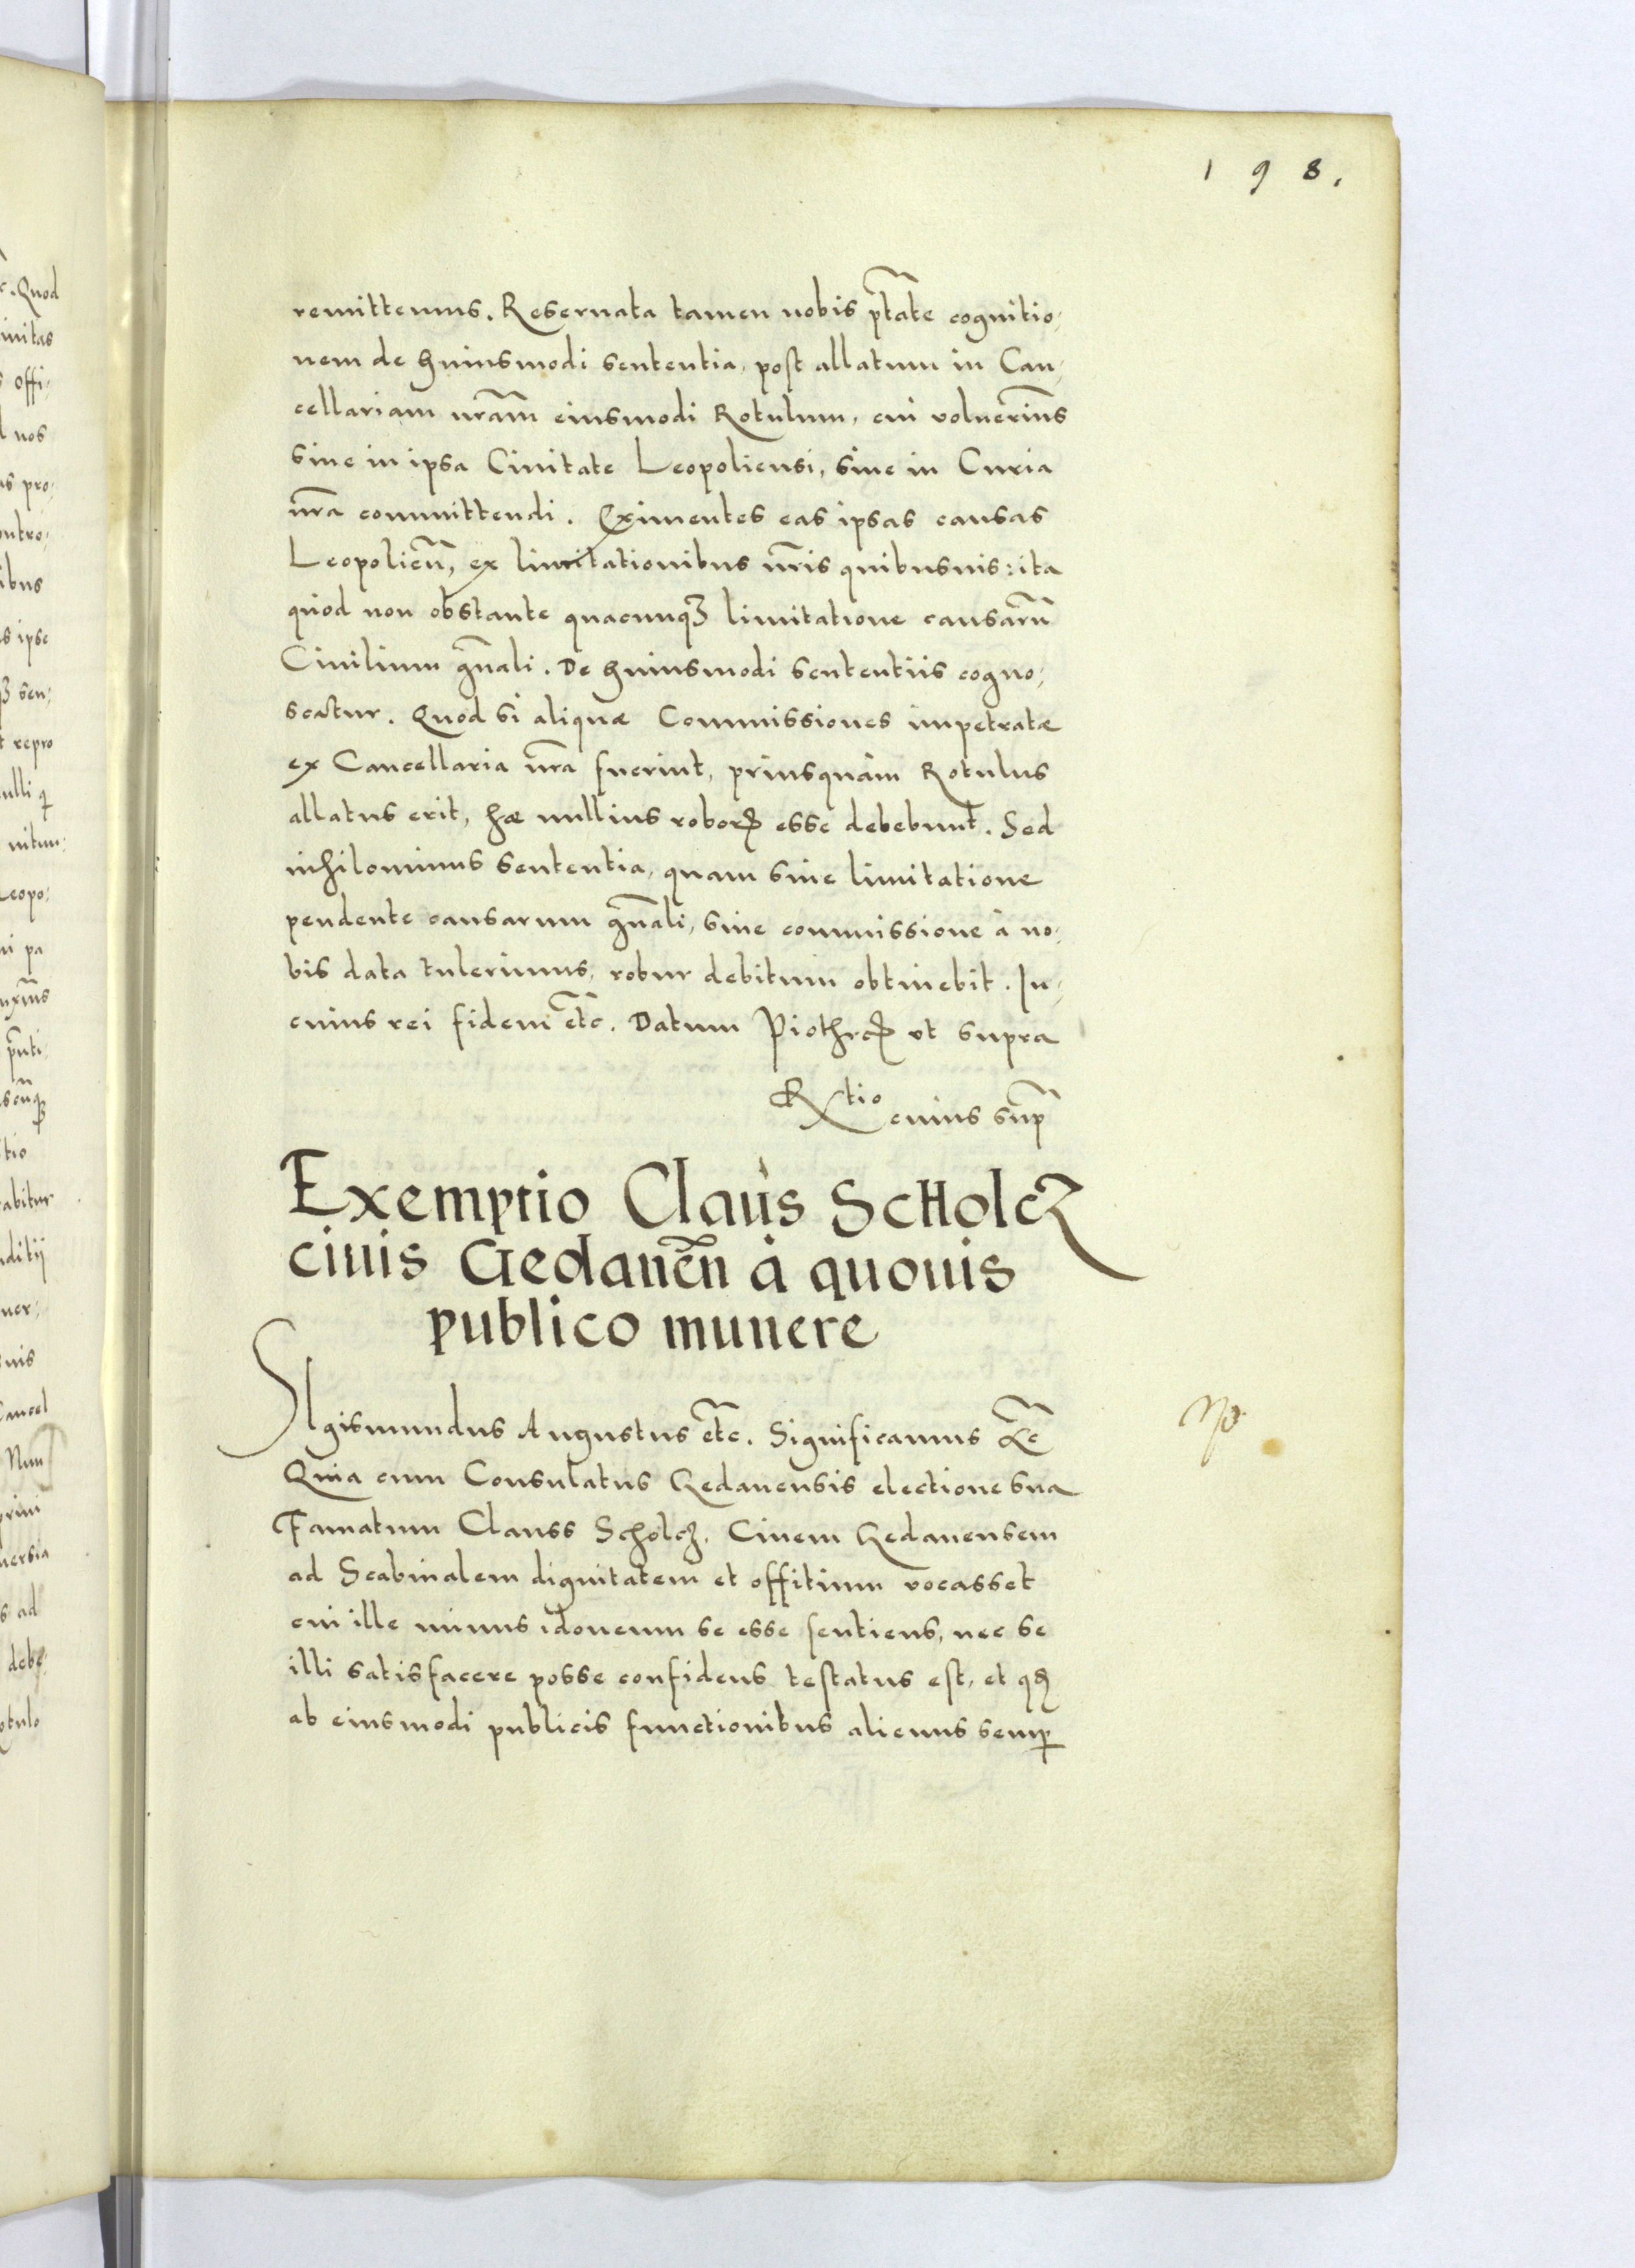 198.
remittemus. Reseruata tamen nobis ptãte cognitio,
nem de huiusmodi sententia, post allatum in Can,
cellariam nrãm eiusmodi Rotulum, cui voluerim̃s
siue in ipsa Ciuitate Leopoliensi, siue in Curia
nr̃a committendi. Eximentes eas ipsas causas
Leopolieñ, ex limitationibus nr̃is quibusuis: ita
quod non obstante quacunqꝫ limitatione causarũ
Ciuilium gñali. De huiusmodi sententiis cogno,
scatur. Quod si aliquæ Commissiones impetratæ
ex Cancellaria nr̃a fuerint, priusquàm Rotulus
allatus erit, hæ nullius roborꝭ esse debebunt. Sed
nihilominus sententia, quam siue limitatione
pendente causarum gñali, siue commissione à no,
bis data tulerimus, robur debitum obtinebit. In,
cuius rei fidem etc̃. Datum Piothrcꝭ vt supra
Rtio cuius sup̃
Exemptio Claus Scholcz
ciuis Gedaneñ à quouis
publico munere
SIgismundus Augustus etc̃. Significamus &c̃
Quia cum Consulatus Gedanensis electione sua
Famatum Clauss Scholcz. Ciuem Gedanensem
ad Scabinalem dignitatem et offitium vocasset
cui ille minus idoneum se esse sentiens, nec se
illi satisfacere posse confidens testatus est, et qđ
ab eiusmodi publicis functionibus alienus semꝑ